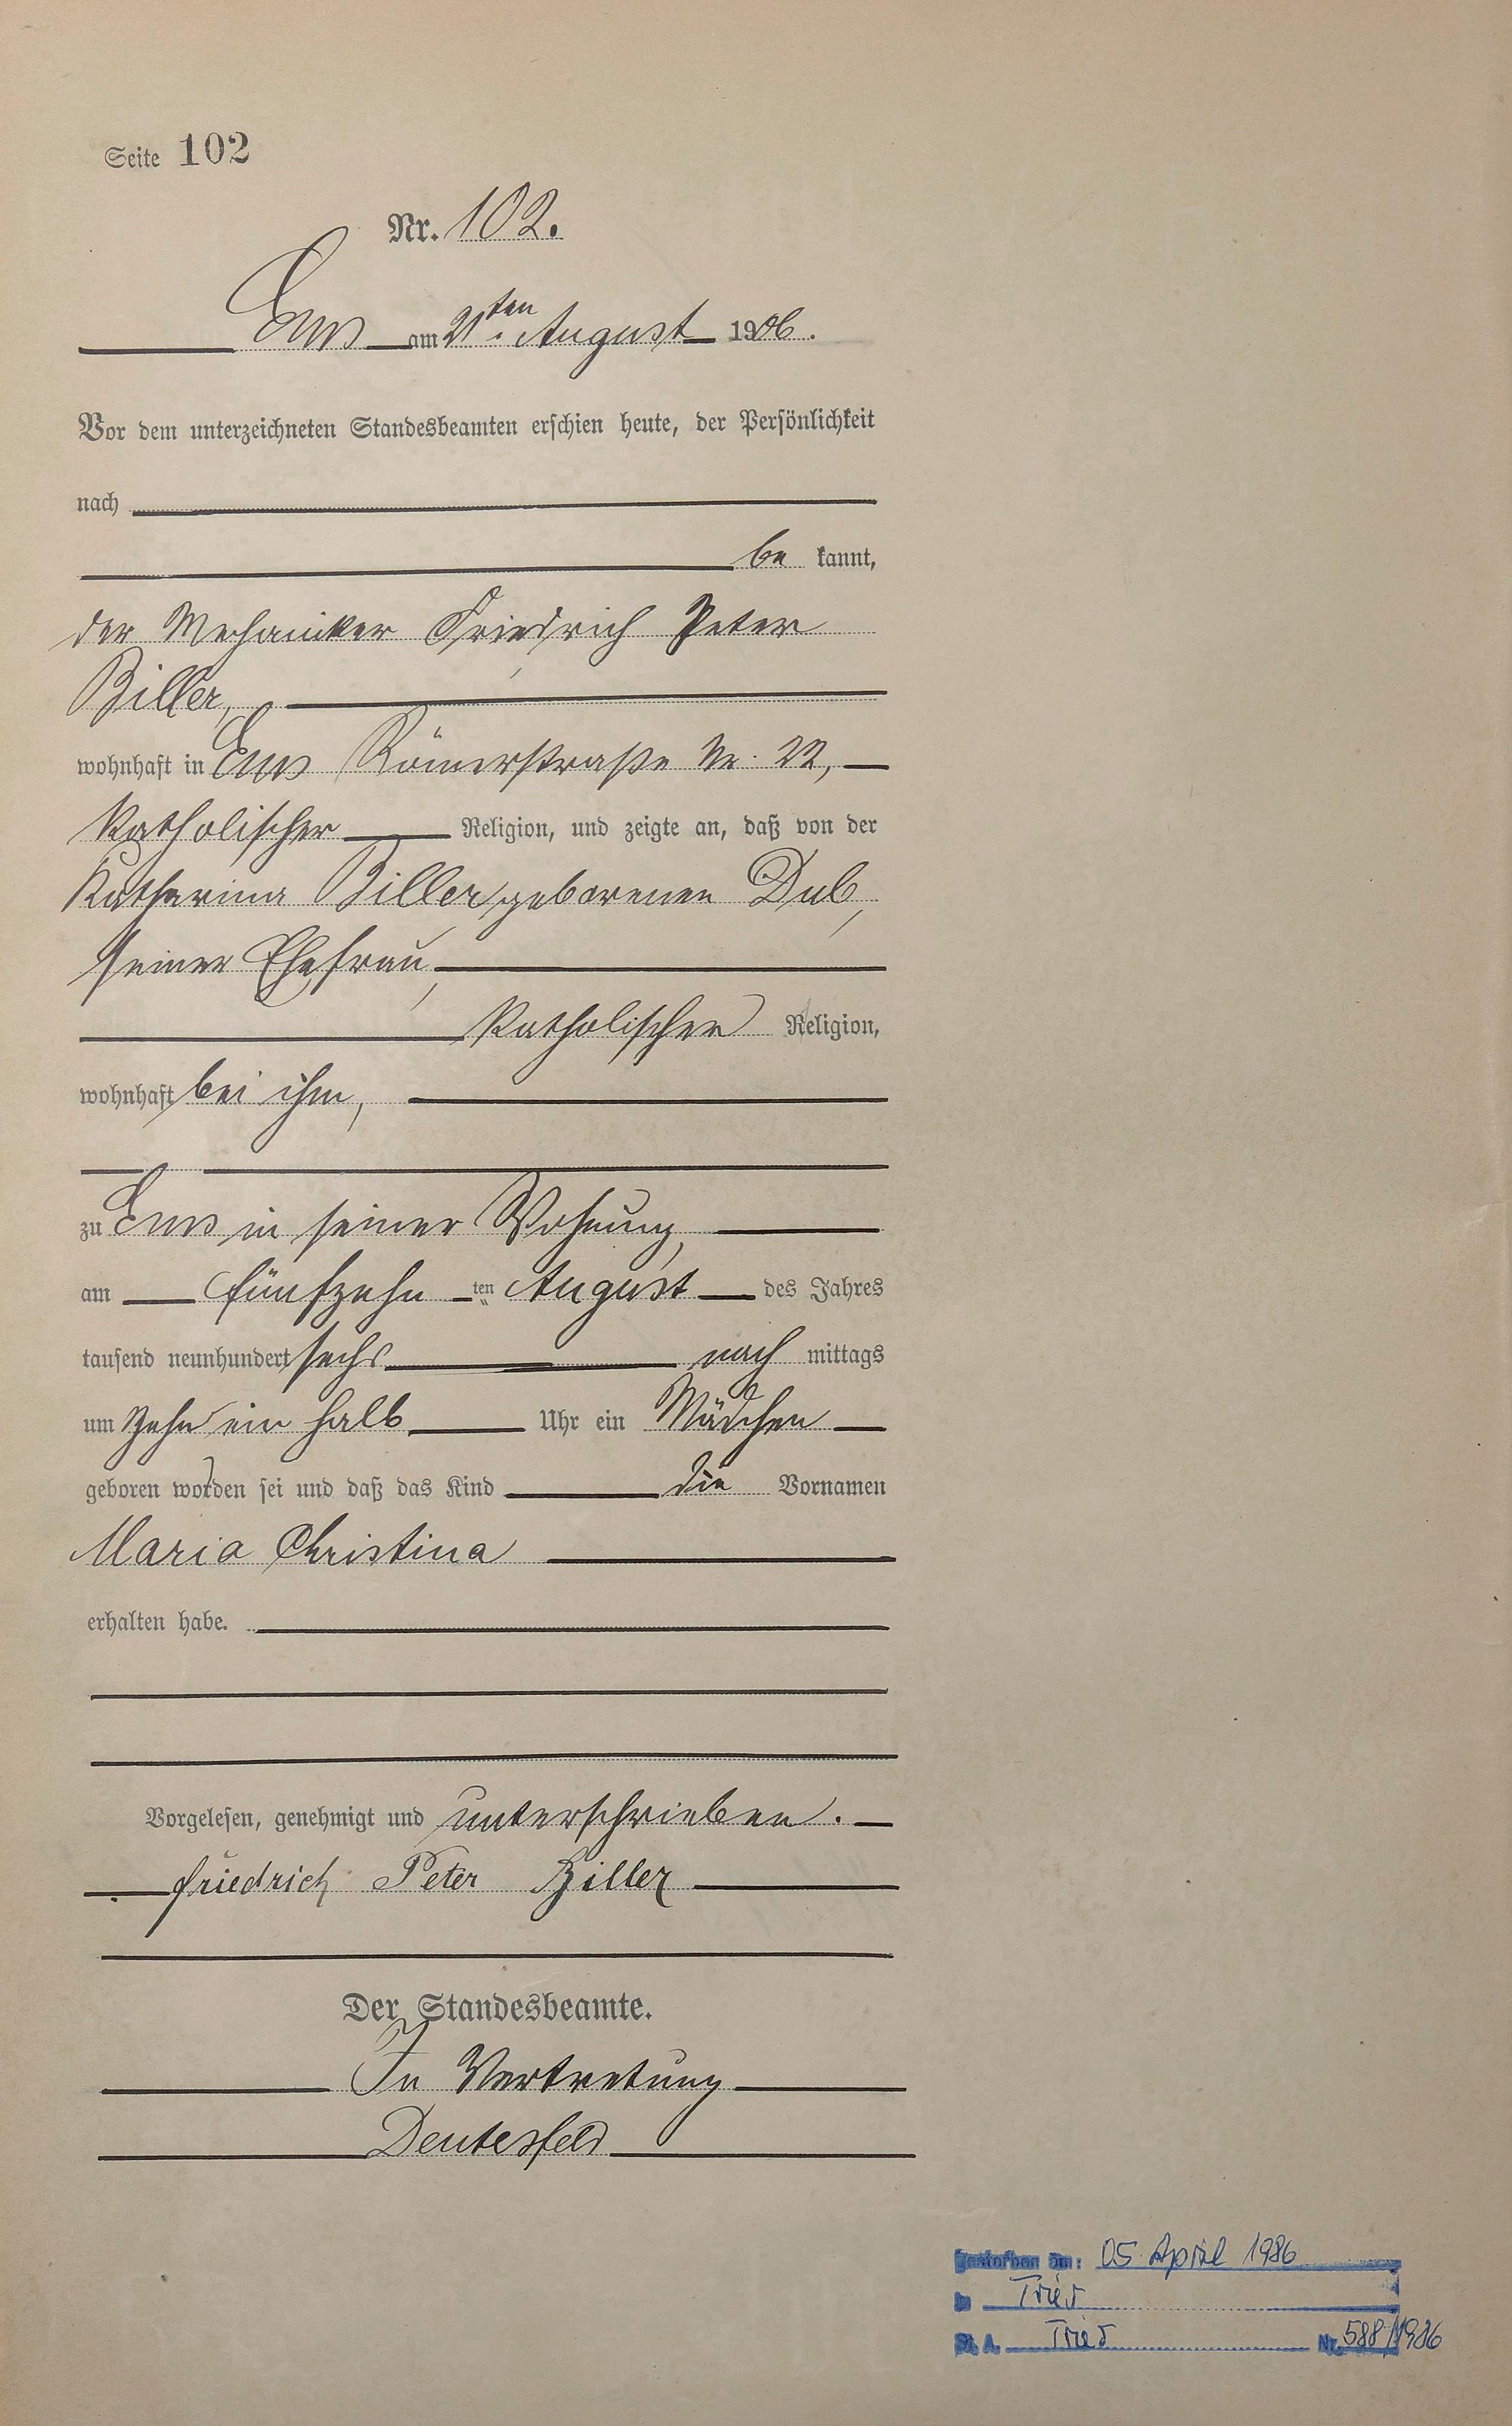 Seite 102
Nr. 102.
Ems am 21ten August 1906.
Vor dem unterzeichneten Standesbeamten erschien heute, der Persönlichkeit
nach
be kannt,
der Mechaniker Friedrich Peter
Biller,
wohnhaft in Ems Römerstraße Nr. 22,
katholischer Religion, und zeigte an, daß von der
Katharina Biller geborenen Dul,
seiner Ehefrau,
katholischer Religion,
wohnhaft bei ihm,
zu Ems in seiner Wohnung,
am fünfzehn ten August des Jahres
tausend neunhundert sechs nach mittags
um zehn ein halb Uhr ein Mädchen
geboren worden sei und daß das Kind die Vornamen
Maria Christina
erhalten habe.
Vorgelesen, genehmigt und unterschrieben.
Friedrich Peter Biller
Der Standesbeamte.
In Vertretung
Deutesfeld
Gestorben am: 05 April 1986
in Trier
St. A. Trier Nr. 588/1986